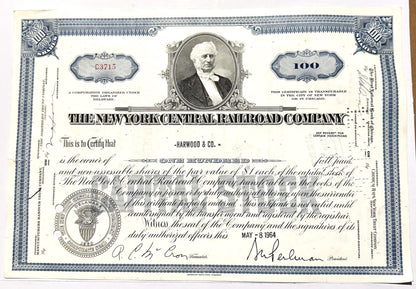 100 100
C3715 100
A CORPORATION ORGANIZED UNDER THE LAWS OF DELAWARE.
THIS CERTIFICATE IS TRANSFERABLE IN THE CITY OF NEW YORK OR IN CHICAGO.
THE NEW YORK CENTRAL RAILROAD COMPANY
This is to Certify that -HARWOOD & CO.- SEE REVERSE FOR CERTAIN DEFINITIONS
is the owner of ONE HUNDRED full paid
and non-assessable shares of the par value of $1 each of the capital stock of
The New York Central Railroad Company transferable on the books of the
Company in person or by duly authorized attorney upon surrender
of this certificate properly endorsed. This certificate is not valid until
countersigned by the transfer agent and registered by the registrar.
Witness the seal of the Company and the signatures of its
duly authorized officers this MAY -8 1964
President